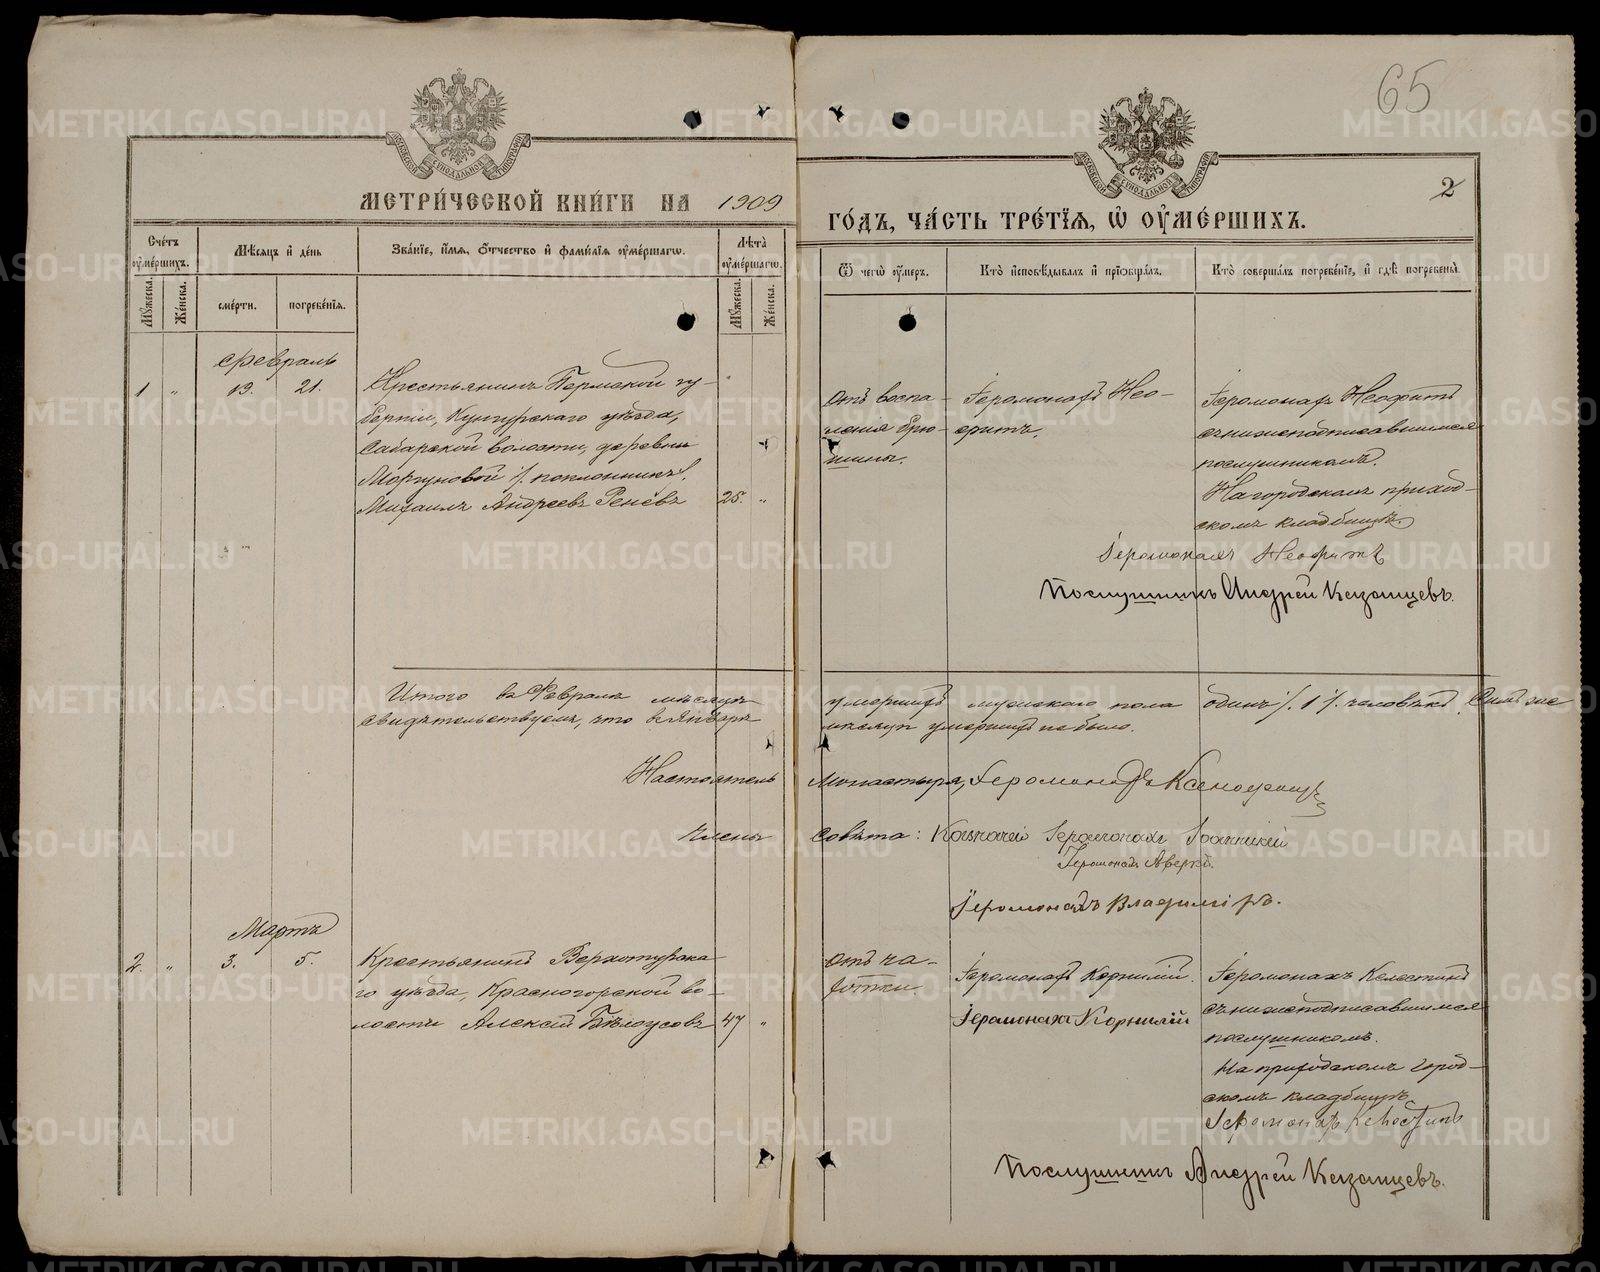 65
2
МЕТРИ́ЧЕСКОЙ КНИ́ГИ НА 1909
ГО́ДЪ, ЧА́СТЬ ТРЕ́ТІѦ, Ѡ҆ ОУ҆МЕ́РШИХЪ.
Сче́тъ оу҆ме́ршихъ.
Мꙋ́жеска.
Же́нска.
Мѣ́сѧцъ и҆ де́нь
сме́рти.
погребе́нїѧ.
Зва́нїе, и҆́мѧ, ѻ҆́тчество и҆ фами́лїѧ оу҆ме́ршагѡ.
Лѣ́та оу҆ме́ршагѡ.
Мꙋ́жеска.
Же́нска.
Ѿ чегѡ̀ оу҆́меръ.
Кто̀ и҆сповѣ́дывалъ и҆ прїѡбща́лъ.
Кто̀ соверша́лъ погребе́нїе, и҆ гдѣ̀ погребены̀.
Февраль
1 " 19. 21.
Крестьянинъ Пермской гу-
берніи, Кунгурскаго уѣзда,
Сабарской волости, деревни
Моргуновой /. поклонникъ/.
Михаилъ Андреевъ Реневъ 25. "
Отъ воспа-
ленія брю-
шины.
Іеромонахъ Нео-
фитъ.
Іеромонахъ Неофитъ
съ нижеподписавшимся
послушникомъ.
На городскомъ приход-
скомъ кладбищѣ.
Іеромонахъ Неофитъ
Послушникъ Андрей Казанцевъ.
Итого въ Февралѣ мѣсяцѣ умершихъ мужскаго пола одинъ /. 1 /. человѣкъ. Симъ же
свидѣтельствуемъ, что въ Январѣ мѣсяцѣ умершихъ не было.
Настоятель Монастыря, Іеромонахъ Ксенофонтъ
Члены Совѣта: Казначей Іеромонахъ Іоанникій
Іеромонахъ Аверкій.
Іеромонахъ Владиміръ.
Мартъ
2. " 3. 5.
Крестьянинъ Верхотурска-
го уѣзда, Красногорской во-
лости Алексій Бѣлоусовъ 47 "
Отъ ча-
хотки.
Іеромонахъ Корнилій.
Іеромонахъ Корнилій
Іеромонахъ Келестинъ
съ нижеподписавшимся
послушникомъ.
На приходскомъ город-
скомъ кладбищѣ
Іеромонахъ Келестинъ
Послушникъ Андрей Казанцевъ.
METRIKI.GASO-URAL.RU